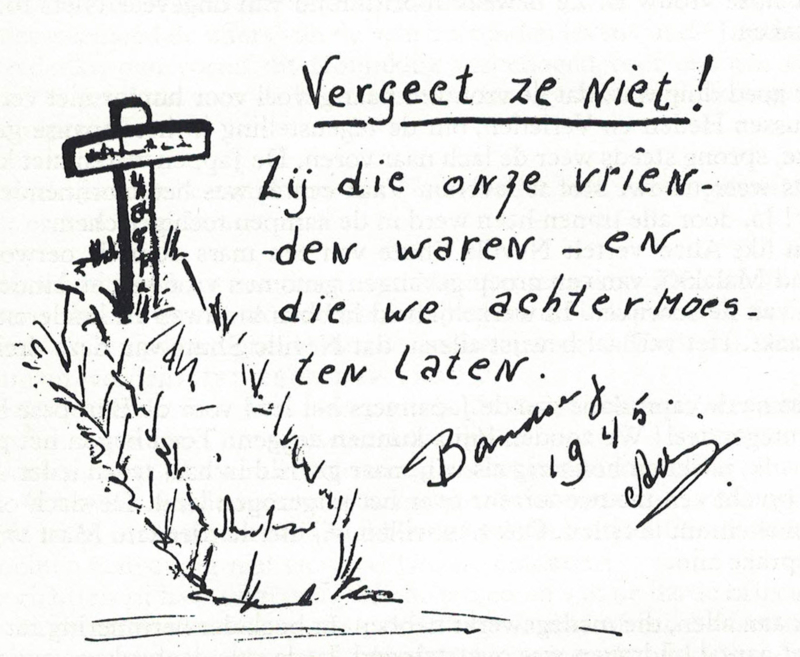 Vergeet ze Niet!
Zij die onze vrien
-den waren en
die we achter Moes
ten laten.
1945